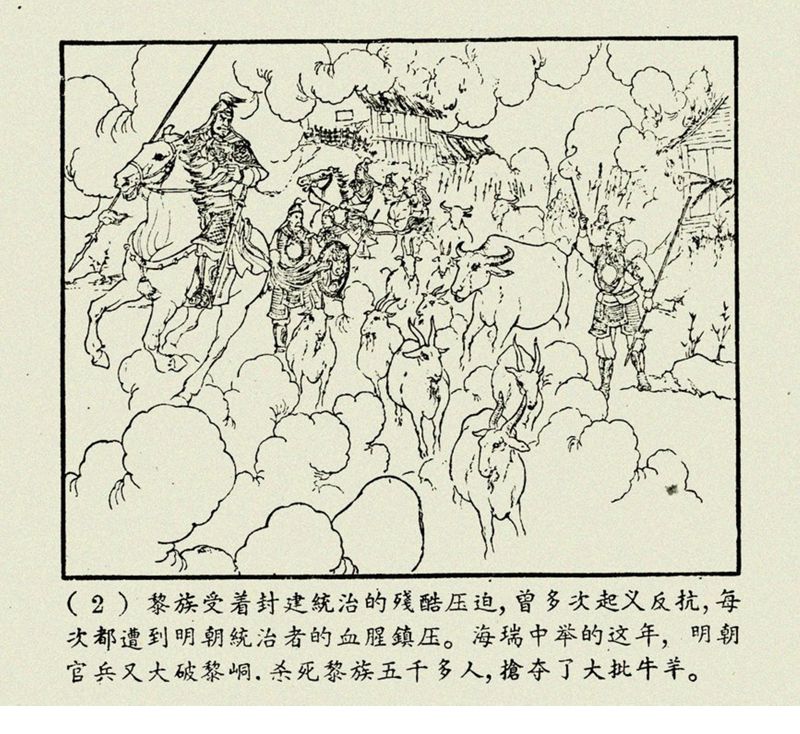 (2) 黎族受着封建統治的殘酷压迫,曾多次起义反抗,每
次都遭到明朝統治者的血腥鎮压。海瑞中举的这年,明朝
官兵又大破黎峒.杀死黎族五千多人,搶夺了大批牛羊。